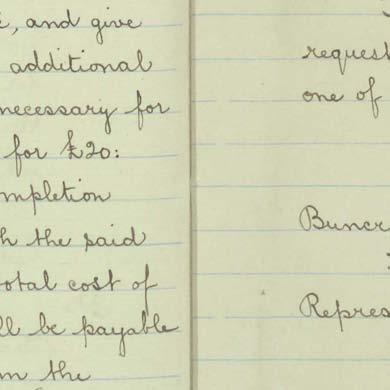 , and give
additional
necessary for
for £20:
mpletion
h the said
total cost of
ll be payable
m the
request
one of
Buncr
Repres